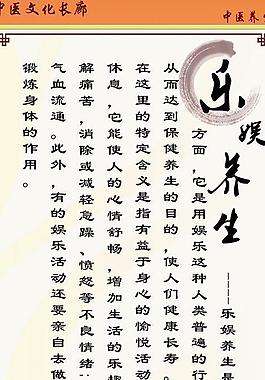 中医文化长廊
中医养
乐娱养生
————乐娱养生是
方面，它是用娱乐这种人类普遍的行
从而达到保健养生的目的，使人们健康长寿。
在这里的特定含义是指有益于身心的愉悦活动
休息，它能使人的心情舒畅，增加生活的乐趣
解痛苦，消除或减轻急躁、愤怒等不良情绪：
气血流通。此外，有的娱乐活动还要亲自去做
锻炼身体的作用。